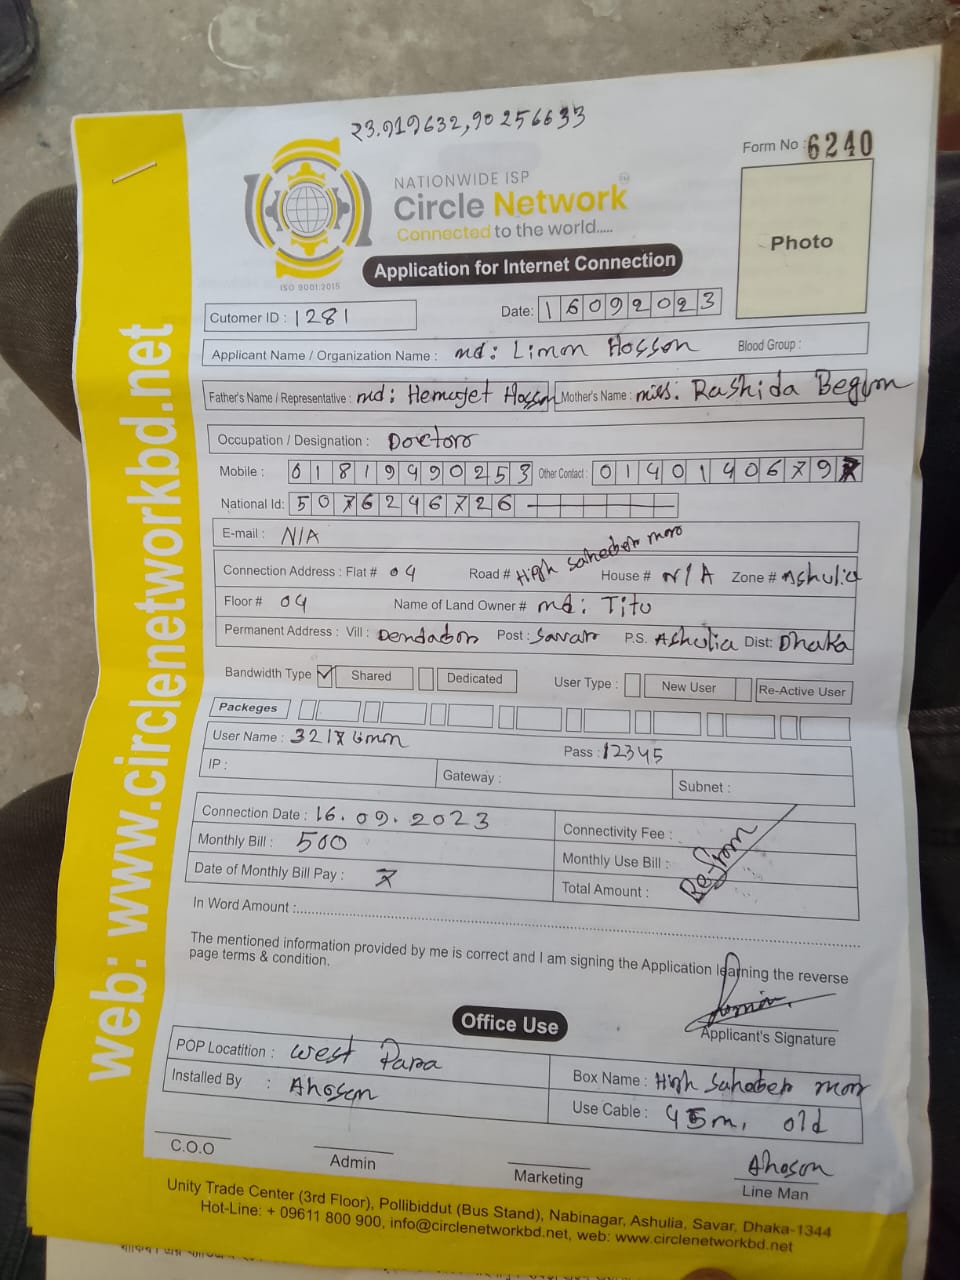 23.919632,90 256633
Form No : 6240
NATIONWIDE ISP
Circle Network
Connected to the world.....
ISO 9001:2015
Photo
Application for Internet Connection
Cutomer ID : 1281
Date: 16092023
Applicant Name / Organization Name : md: Limon Hosson Blood Group :
Father's Name / Representative : md: Hemayet Hosson Mother's Name : miss. Rashida Begum
Occupation / Designation : Doctoro
Mobile : 01819490253 Other Contact : 0140140679
National Id: 5076246726
E-mail : N/A
Connection Address : Flat # 04 Road # High Saheber moro House # N/A Zone # Ashulia
Floor # 04 Name of Land Owner # md: Tito
Permanent Address : Vill : Dendabor Post : Savar P.S. Ashulia Dist: Dhaka
Bandwidth Type Shared Dedicated User Type : New User Re-Active User
Packeges
User Name : Limon Pass : 12345
IP : Gateway : Subnet :
Connection Date : 16.09.2023 Connectivity Fee :
Monthly Bill : 500 Monthly Use Bill :
Date of Monthly Bill Pay : 7 Total Amount :
In Word Amount :
The mentioned information provided by me is correct and I am signing the Application learning the reverse
page terms & condition.
Applicant's Signature
Office Use
POP Locatition : West Para Box Name : High Saheber mor
Installed By : Ahosan Use Cable : 45m, old
Ahosan
C.O.O Admin Marketing Line Man
Unity Trade Center (3rd Floor), Pollibiddut (Bus Stand), Nabinagar, Ashulia, Savar, Dhaka-1344
Hot-Line: + 09611 800 900, info@circlenetworkbd.net, web: www.circlenetworkbd.net
web: www.circlenetworkbd.net